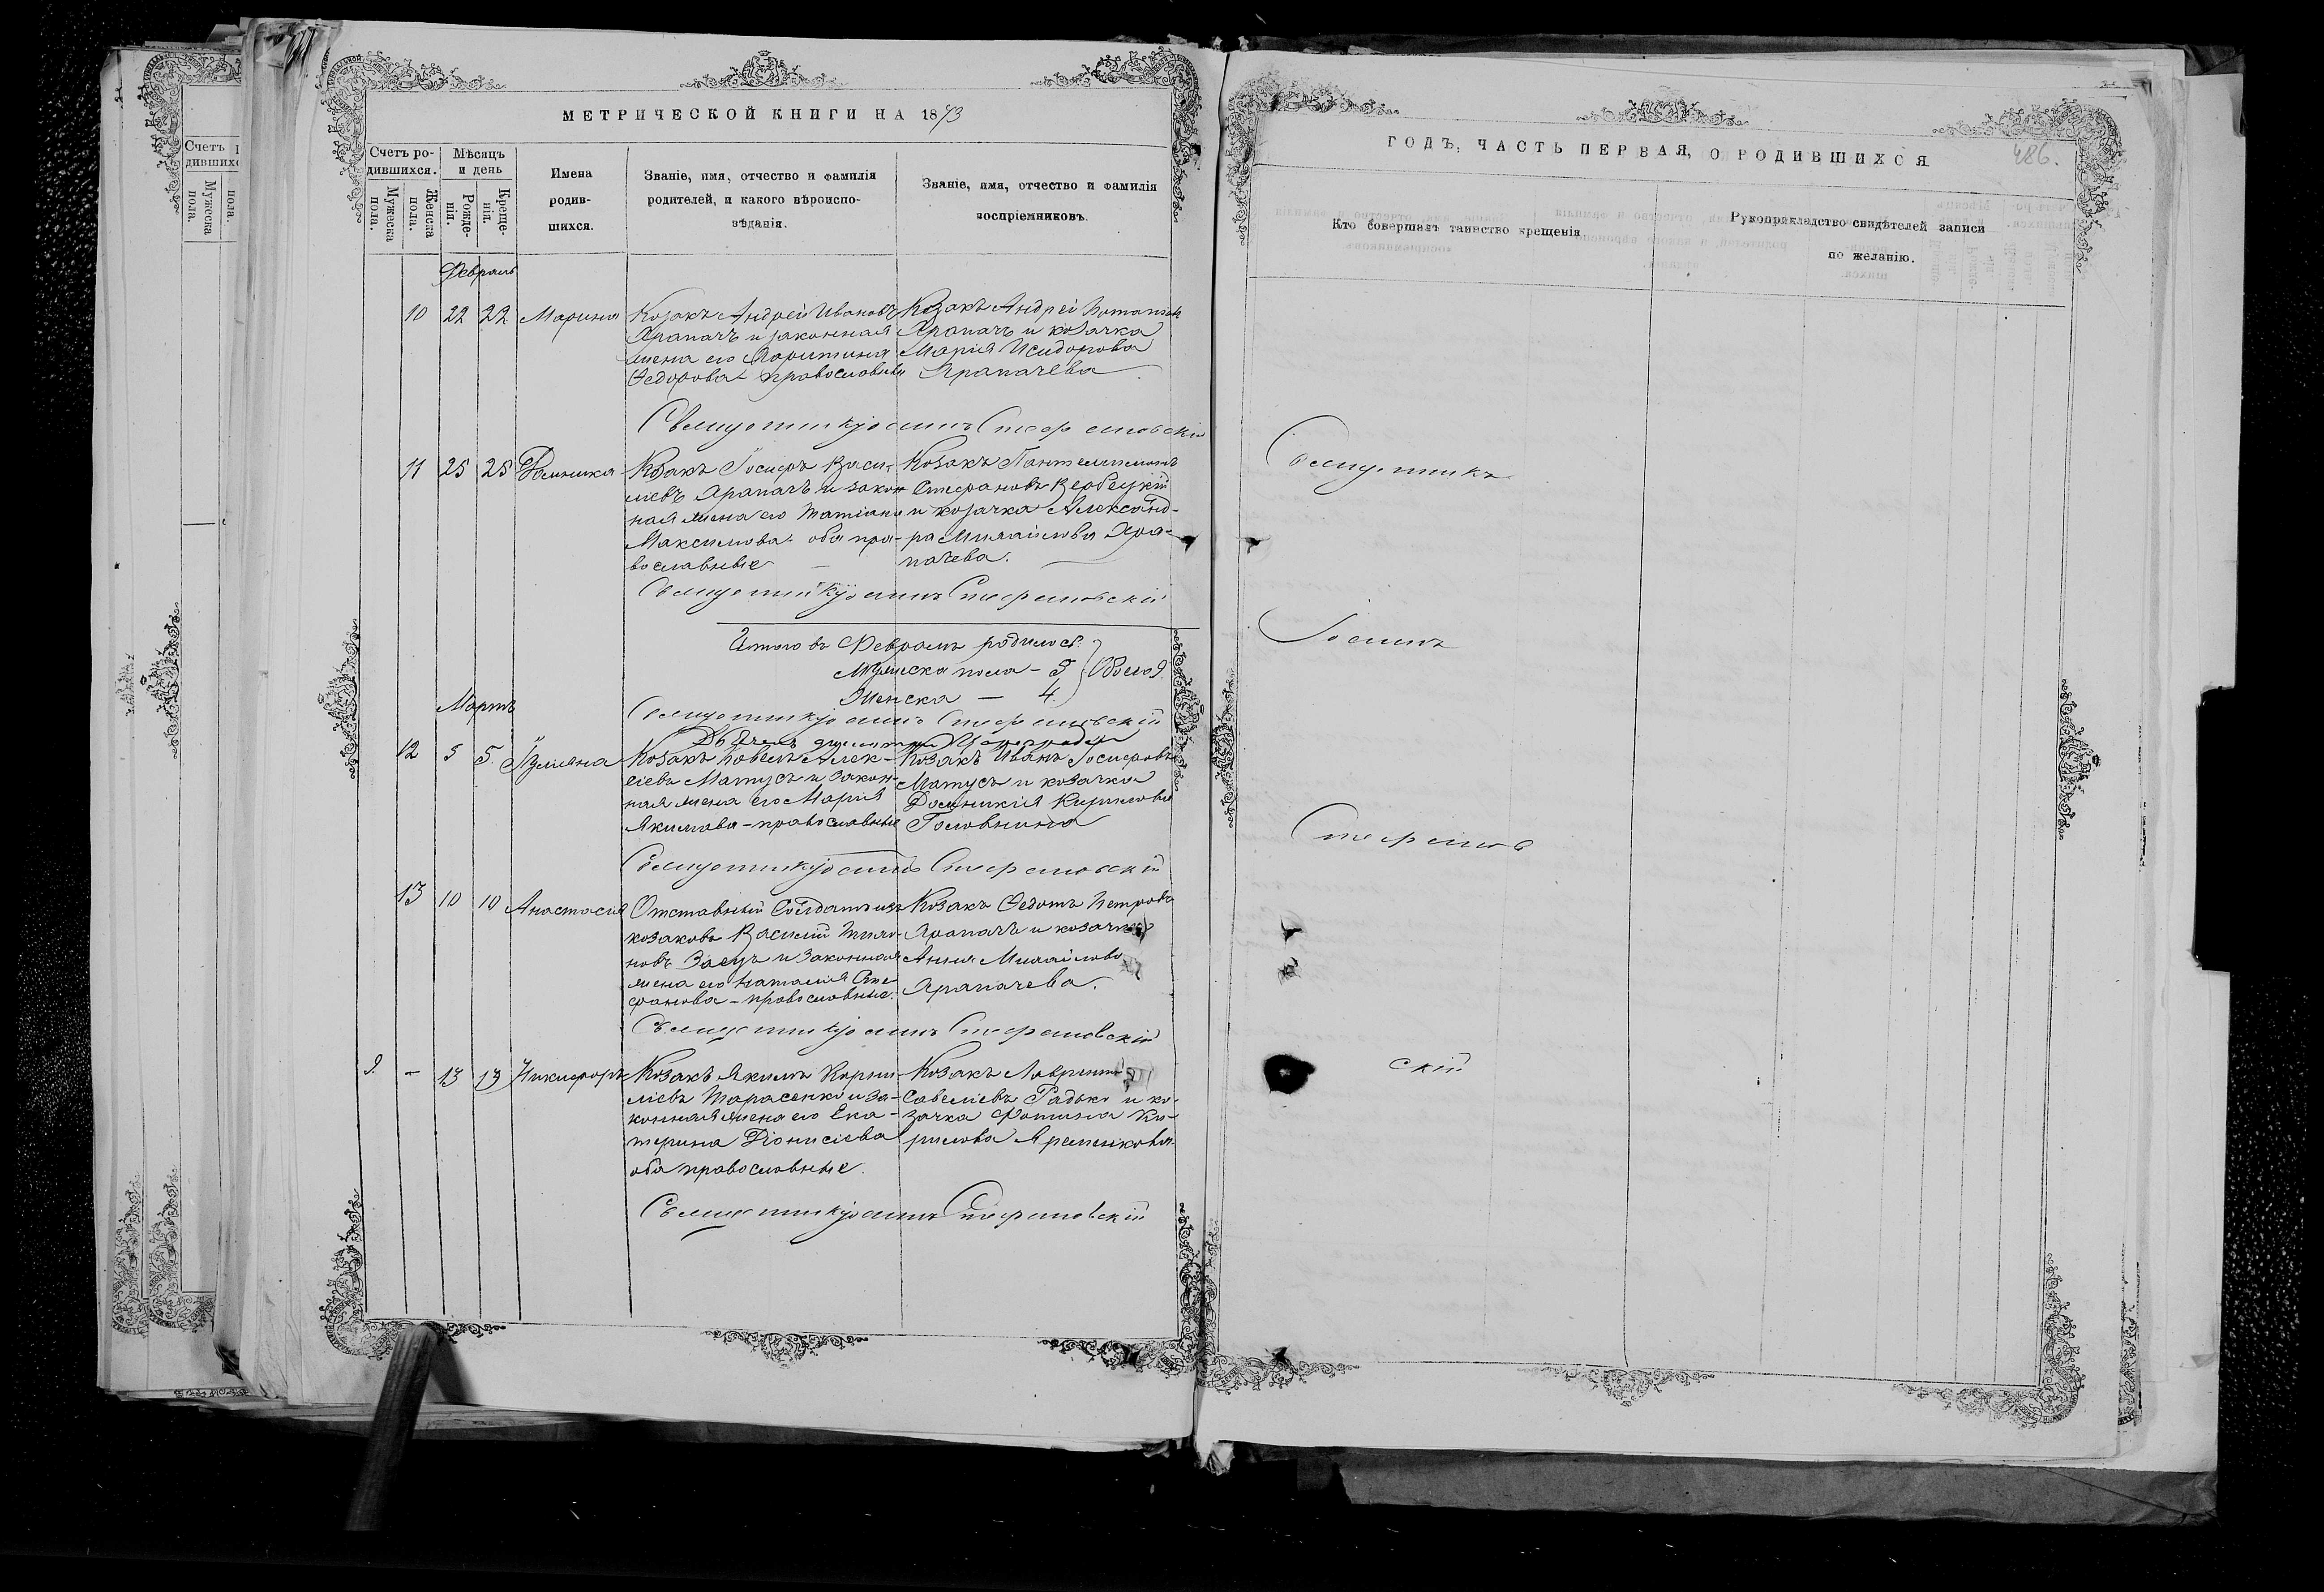 Счетъ
дившихс
Мужеска
пола.
пола.
МЕТРИЧЕСКОЙ КНИГИ НА 1873
Счетъ ро-
дившихся.
Мужеска
пола.
Женска
пола.
Мѣсяцъ
и день
Рожде-
нія.
Креще-
нія.
Имена
родив-
шихся.
Званіе, имя, отчество и фамилія
родителей, и какого вѣроиспо-
вѣданія.
Званіе, имя, отчество и фамилія
воспріемниковъ.
Февраль
10 22 22 Марина
Козакъ Андрей Ивановъ
Храпачъ и законная
жена его
Федорова - православные
Козакъ Андрей
Храпачъ и козачка
Марія Исидорова
Храпачева
Священникъ Іоаннъ Стефановскій
11 25 25 Домникия
Козакъ Іосифъ Васи-
ліевъ Храпачъ и закон
ная жена его Татіана
Максимова. оба пра-
вославные
Козакъ Пантелимонъ
Стефановъ Вербецкій
и козачка Александ-
ра Михайлова Хра-
пачева.
Священникъ Іоаннъ Стефановскій
Итого въ Февралѣ родилось
Мужска пола - 5
Женска - 4
Обоего 9.
Священникъ Іоаннъ Стефановскій
Мартъ
12 5 5. Іуліяна
Козакъ Павелъ Алек-
сіевъ Матусъ и закон-
ная жена его Марія
Якимова - православные
Козакъ Иванъ Іосифовъ
Матусъ и козачка
Домникія Кирилова
Головнина
Священникъ Іоаннъ Стефановскій
13 10 10 Анастасія
Отставный Солдатъ изъ
козаковъ Василій
новъ Заецъ и законная
жена его Наталія Сте
фанова - православные.
Козакъ Федотъ Петровъ
Храпачъ и козачка
Анна Михайлова
Храпачева.
Священникъ Іоаннъ Стефановскій
9. - 13 13 Никифоръ
Козакъ Якимъ Корни-
ліевъ Тарасенко и за-
конная жена его Ека-
терина Діонисіева
оба православные.
Козакъ
Савеліевъ Радько и ко-
зачка Фотина Ки-
рилова Яременкова.
Священникъ Іоаннъ Стефановскій
ГОДЪ, ЧАСТЬ ПЕРВАЯ, О РОДИВШИХСЯ
486.
Кто совершалъ таинство крещенія
Рукоприкладство свидѣтелей записи
по желанію.
Священникъ
Іоаннъ
Стефанов
скій